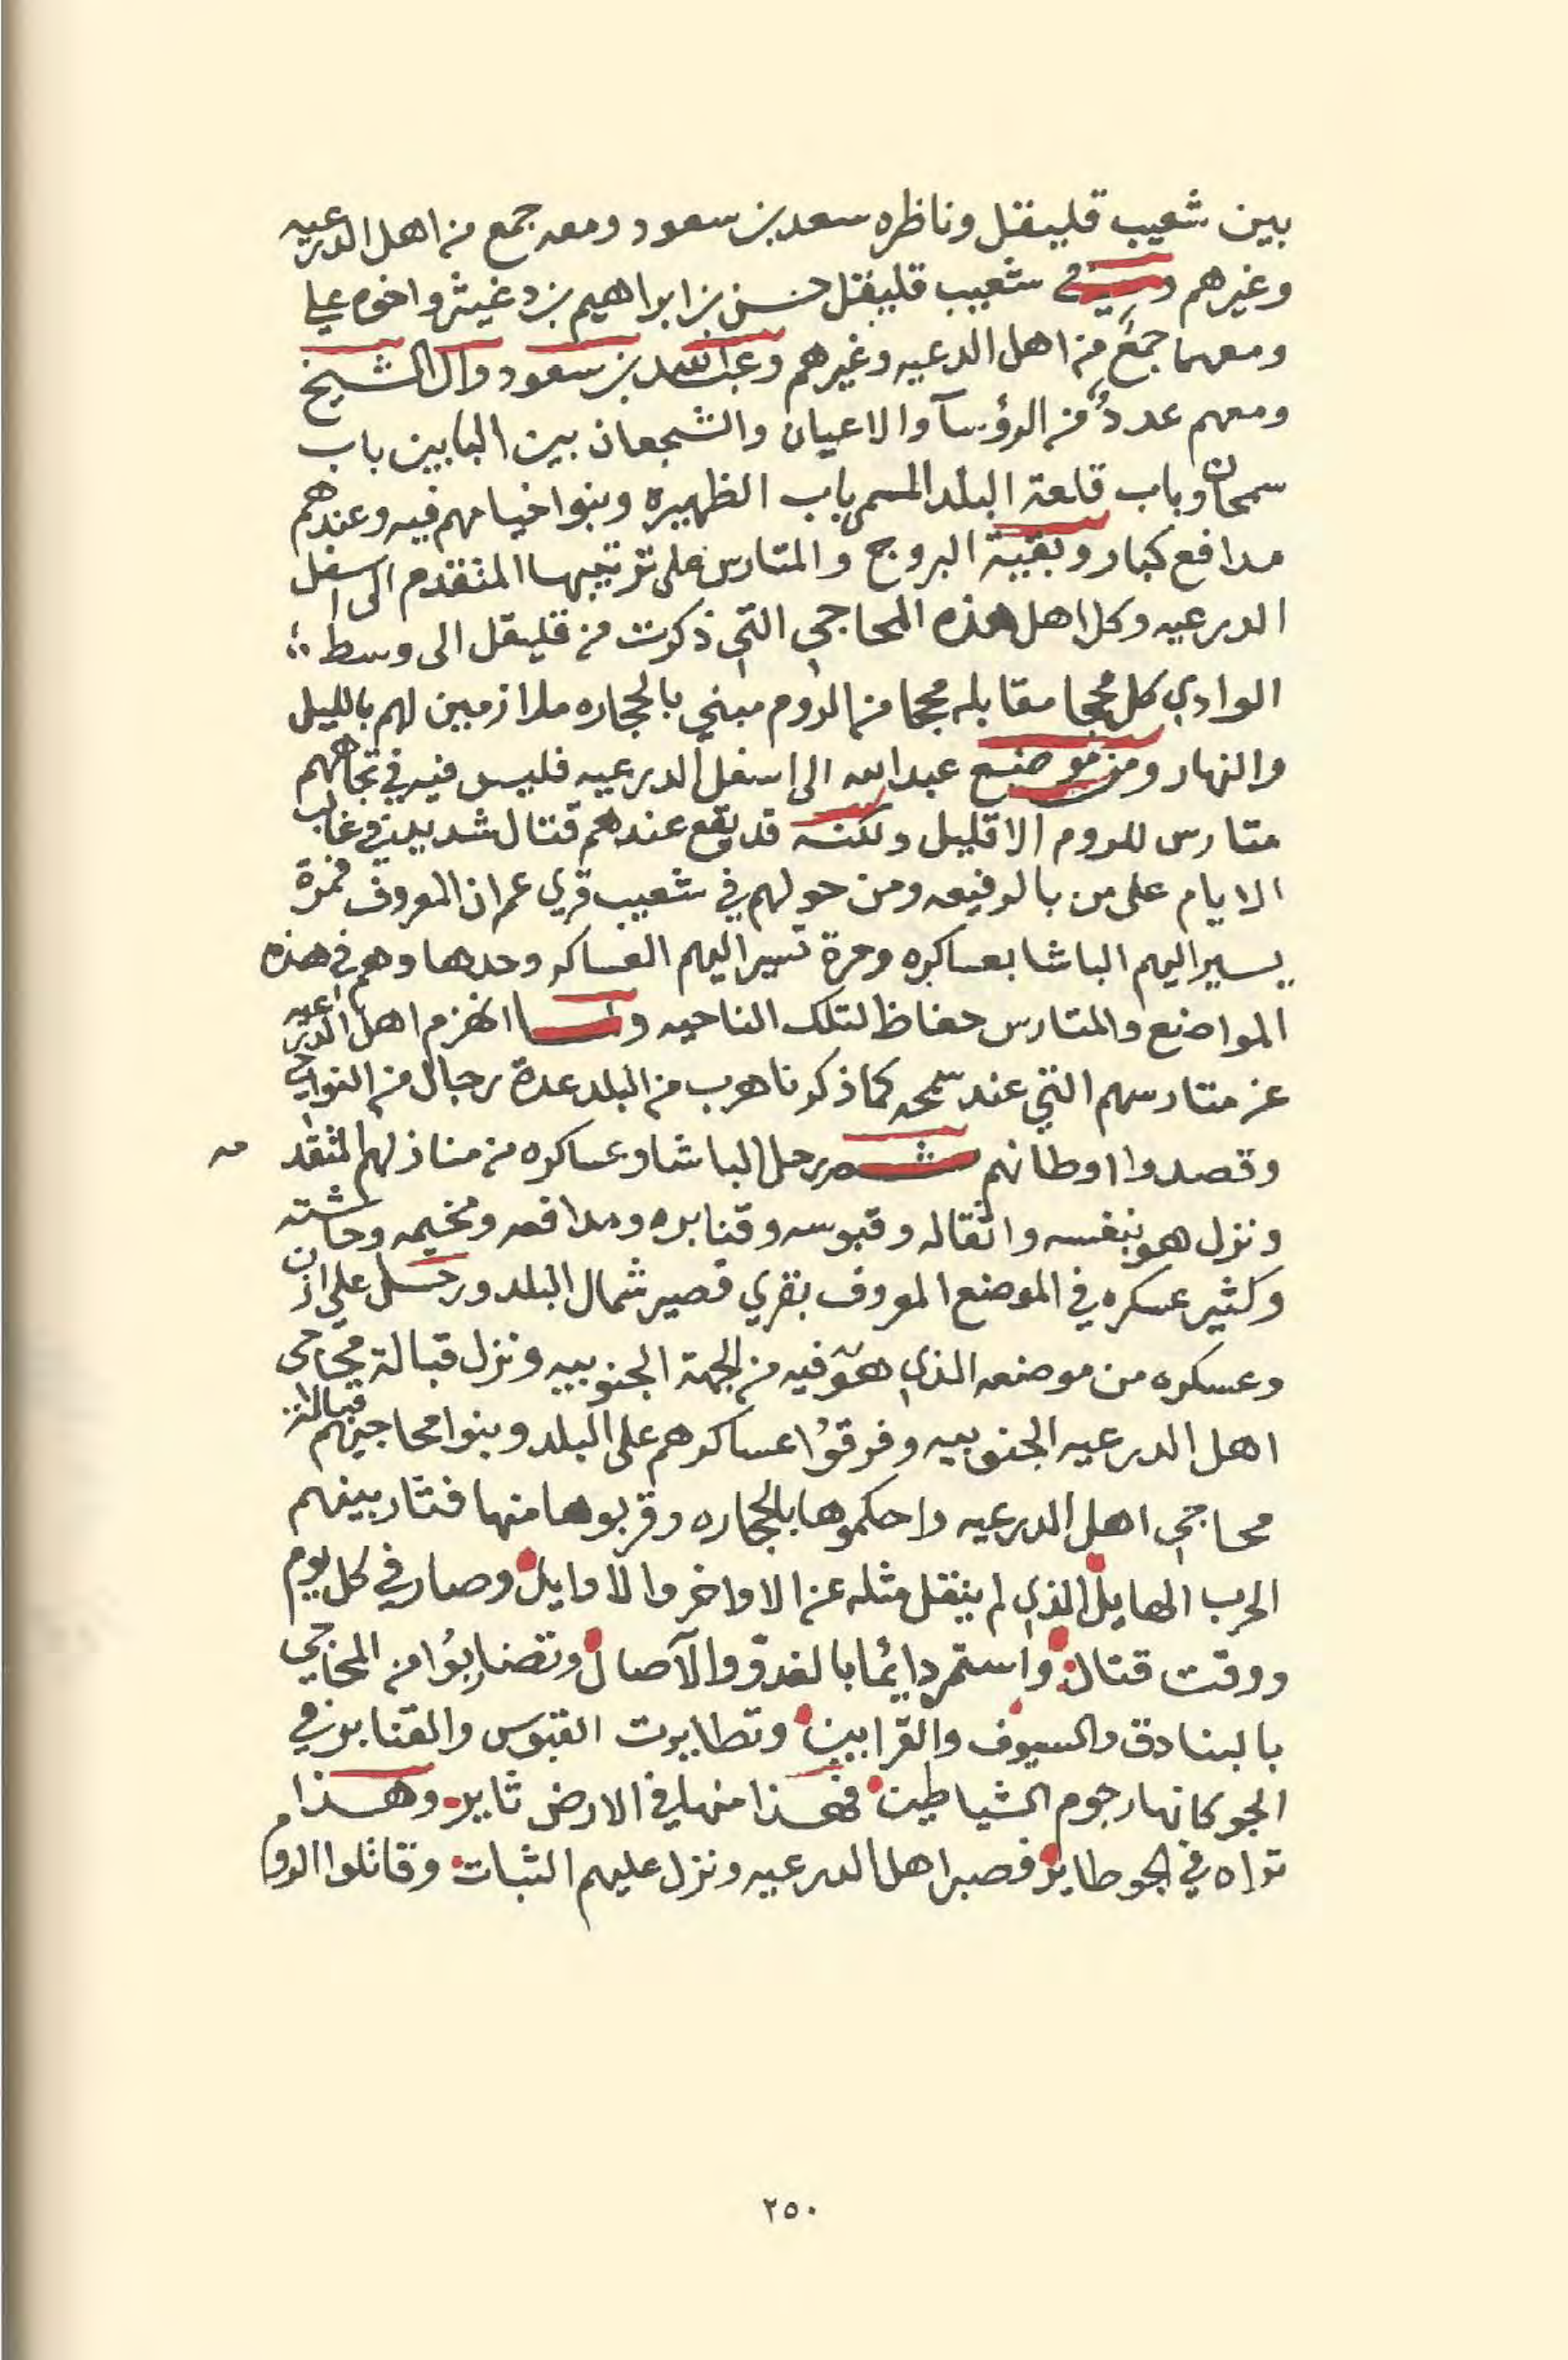 بين شعيب قليقل وناظره سعد بن سعود ومعه جمع من اهل الدرعيه
وغيرهم وفي شعيب قليقل حسن بن ابراهيم بن دغيثر واخوه علي
ومعهما جمعٌ من اهل الدرعيه وغيرهم وعبدالله بن سعود وال الشيخ
ومعهم عددٌ من الرؤسآ والاعيان والشجعان بين البابين باب
سمحان وباب قلعة البلد المسمى باب الظهيره وبنوا خيامهم فيه وعندهم
مدافع كبار وبقية البروج والمتارس على ترتيبها المتقدم الى اسفل
الدرعيه وكل اهل هذه المحاجي التي ذكرت من قليقل الى وسط
الوادي كل محجا مقابله محجا من الروم مبني بالحجاره ملازمين لهم بالليل
والنهار ومن موضع عبدالله الى اسفل الدرعيه فليس فيه في تجاههم
متارس للروم الا قليل ولكنه قد يقع عندهم قتال شديد في غالب
الايام على من بالرفيعه ومن حولهم في شعيب قري عمران المعروف فمرة
يسير اليهم الباشا بعساكره ومرة تسير اليهم العساكر وحدها وهم في هذه
المواضع والمتارس حفاظ لتلك الناحيه ولما انهزم اهل الدرعيه
عن متارسهم التي عند سمحه كما ذكرنا هرب من البلد عدة رجال من النواحي
وقصدوا اوطانهم ثم رحل الباشا وعساكره من منازلهم المتقدمه
ونزل هو بنفسه واثقاله وقبوسه وقنابره ومدافعه ومخيمه وحاشيته
وكثير عسكره في الموضع المعروف بقري قصير شمال البلد ورحل علي ازن
وعسكره من موضعه الذي هو فيه من الجهة الجنوبيه ونزل قبالة محاجي
اهل الدرعيه الجنوبيه وفرقوا عساكرهم على البلد وبنوا محاجيهم قبالة
محاجي اهل الدرعيه واحكموها بالحجاره وقربوها منها فثار بينهم
الحرب الهايل الذي لم ينقل مثله عن الاواخر والاوايل وصار في كل يوم
ووقت قتال واستمر دائما بالغدو والآصال وتضاربوا من المحاجي
بالبنادق والسيوف والقرابين وتطايرت القبوس والقنابر في
الجو كانها رجوم الشياطين فهذا منها في الارض ثاير وهذا
تراه في الجو طاير فصبر اهل الدرعيه ونزل عليهم الثبات وقاتلوا الروم
٢٥٠